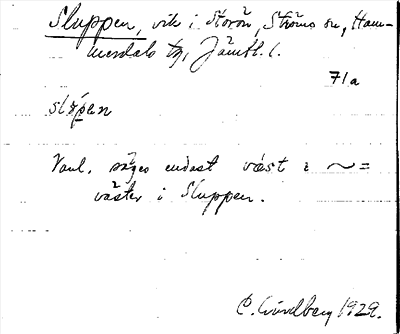 Sluppen, vik i Storön, Ströms sn, Ham-
merdals tg, Jämtl. l.
71a
slúpen
Vanl. säges endast väst i ~ =
väster i Sluppen.
C. Lindberg 1929.